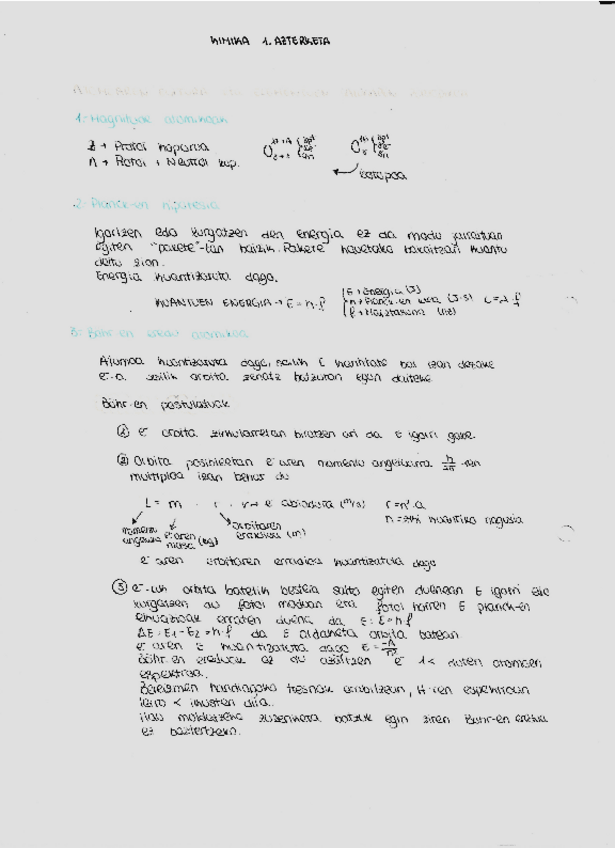 KIMIKA 1. AZTERKETA
1.- Magnitude atomikoak
Z → Protoi kopurua
A → Protoi + Neutroi kop.
isotopoa
2.- Planck-en hipotesia
Igortzen edo xurgatzen den energia ez da modu jarraituan
egiten "pakete"-tan baizik. Pakete hauetako bakoitzari kuantu
deitu zion.
Energia kuantizatuta dago.
KUANTUEN ENERGIA → E = h · f
E → Energia (J)
h → Planck-en ktea (J·s)
f → Maiztasuna (Hz)
3.- Bohr-en eredu atomikoa
Atomoa kuantizatuta dago, soilik E kantitate bat izan dezake
e⁻-a soilik orbita zehatz batzutan egon daiteke
Bohr-en postulatuak
① e⁻ orbita zirkularretan biratzen ari da E igorri gabe.
② Orbita posibleetan e⁻aren momentu angeluarra h/2π -ren
multiploa izan behar du
L = m · r · v → e⁻ abiadura (m/s) r = n² · a
n = zbki kuantiko nagusia
momentu angeluarra
e⁻aren masa (kg)
orbitaren erradioa (m)
e⁻aren orbitaren erradioa kuantizatuta dago
③ e⁻-ak orbita batetik bestera salto egiten duenean E igorri edo
xurgatzen du fotoi moduan eta fotoi horren E Planck-en
ekuazioak ematen duena da E: E = h·f
ΔE = E₁ - E₂ = h·f da E aldaketa orbita batean
e⁻aren E kuantizatuta dago E = -A/n²
Bohr-en ereduak ez du azaltzen e⁻ 1 < duten atomoen
espektroa.
Bereizmen handiagoko tresnak erabiltzean, H-ren espektroan
lerro < ikusten dira.
Hau moldatzeko zuzenketa batzuk egin ziren Bohr-en eredua
ez baztertzeko.